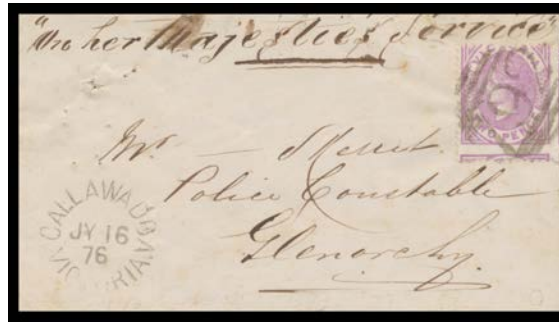 "On her Majestie's Service"
TWO PENCE
Mr. — Skeet.
Police Constable
Glenorchy.
CALLAWADDA
JY 16
76
VICTORIA